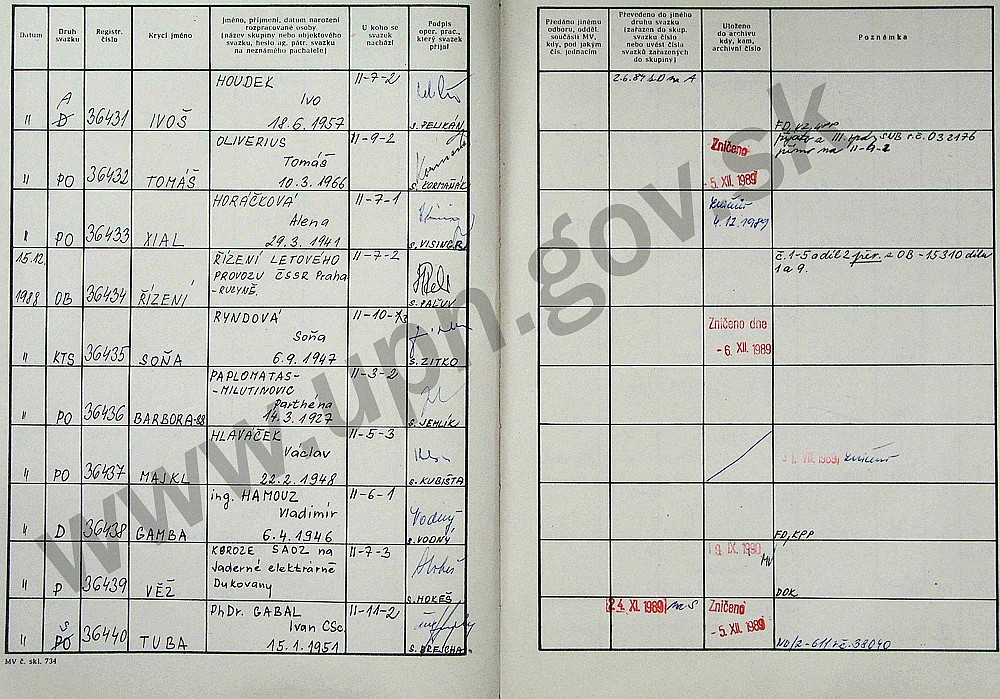 Datum
Druh svazku
Registr. číslo
Krycí jméno
Jméno, příjmení, datum narození rozpracované osoby (název skupiny nebo objektového svazku, heslo ag. pátr. svazku na neznámého pachatele)
U koho se svazek nachází
Podpis oper. prac., který svazek přijal
Předáno jinému odboru, odděl. součásti MV, kdy, pod jakým čís. jednacím
Převedeno do jiného druhu svazku (zařazen do skup. svazku číslo nebo uvést čísla svazků zařazených do skupiny)
Uloženo do archivu kdy, kam, archivní číslo
Poznámka
HOUDEK II-7-2 2.6.89
A Ivo
" D 36431 IVOŠ 18.6.1957 s. PELIKÁN
OLIVERIUS II-9-2 III. SUB r.č. 032176
Tomáš Zničeno na II-9-2
" PO 36432 TOMÁŠ 10.3.1966 s. KORMAŇÁK -5. XII. 1989
HORÁČKOVÁ II-7-1
Alena 4.12.1989
" PO 36433 XIAL 29.3.1941 s. VISINGR
15.12. ŘÍZENÍ LETOVÉHO II-7-2 č. 1-5 a díl 2 z OB-15310 dílu
PROVOZU ČSSR Praha 1 a 9.
1988 OB 36434 ŘÍZENÍ -RUZYNĚ. s. PAĽUV
RYNDOVÁ II-10-3 Zničeno dne
Soňa
" KTS 36435 SOŇA 6.9.1947 s. ZITKO -6. XII. 1989
PAPLOMATAS- II-3-2
-MILUTINOVIC
Parthena
" PO 36436 BARBORA-88 14.3.1927 s. JEMLÍK
HLAVÁČEK II-5-3
Václav VIII. 1989,
" PO 36437 MAJKL 22.2.1948 s. KUBIŠTA
ing. HAMOUZ II-6-1
Vladimír Vodný
" D 36438 GAMBA 6.4.1946 s. VODNÝ FD, KPP
KOROZE SAOZ na II-7-3 IX. 1990
Jaderné elektrárně MV
" P 36439 VĚŽ Dukovany s. MOKEŠ DOK
PhDr. GABAL II-11-2 24. XI. 1989 Zničeno
S Ivan CSc.
" PO 36440 TUBA 15.1.1951 s. BREJCHA -5. XII. 1989 ND/2-611/ r.č. 38040
MV č. skl. 734
www.upn.gov.sk